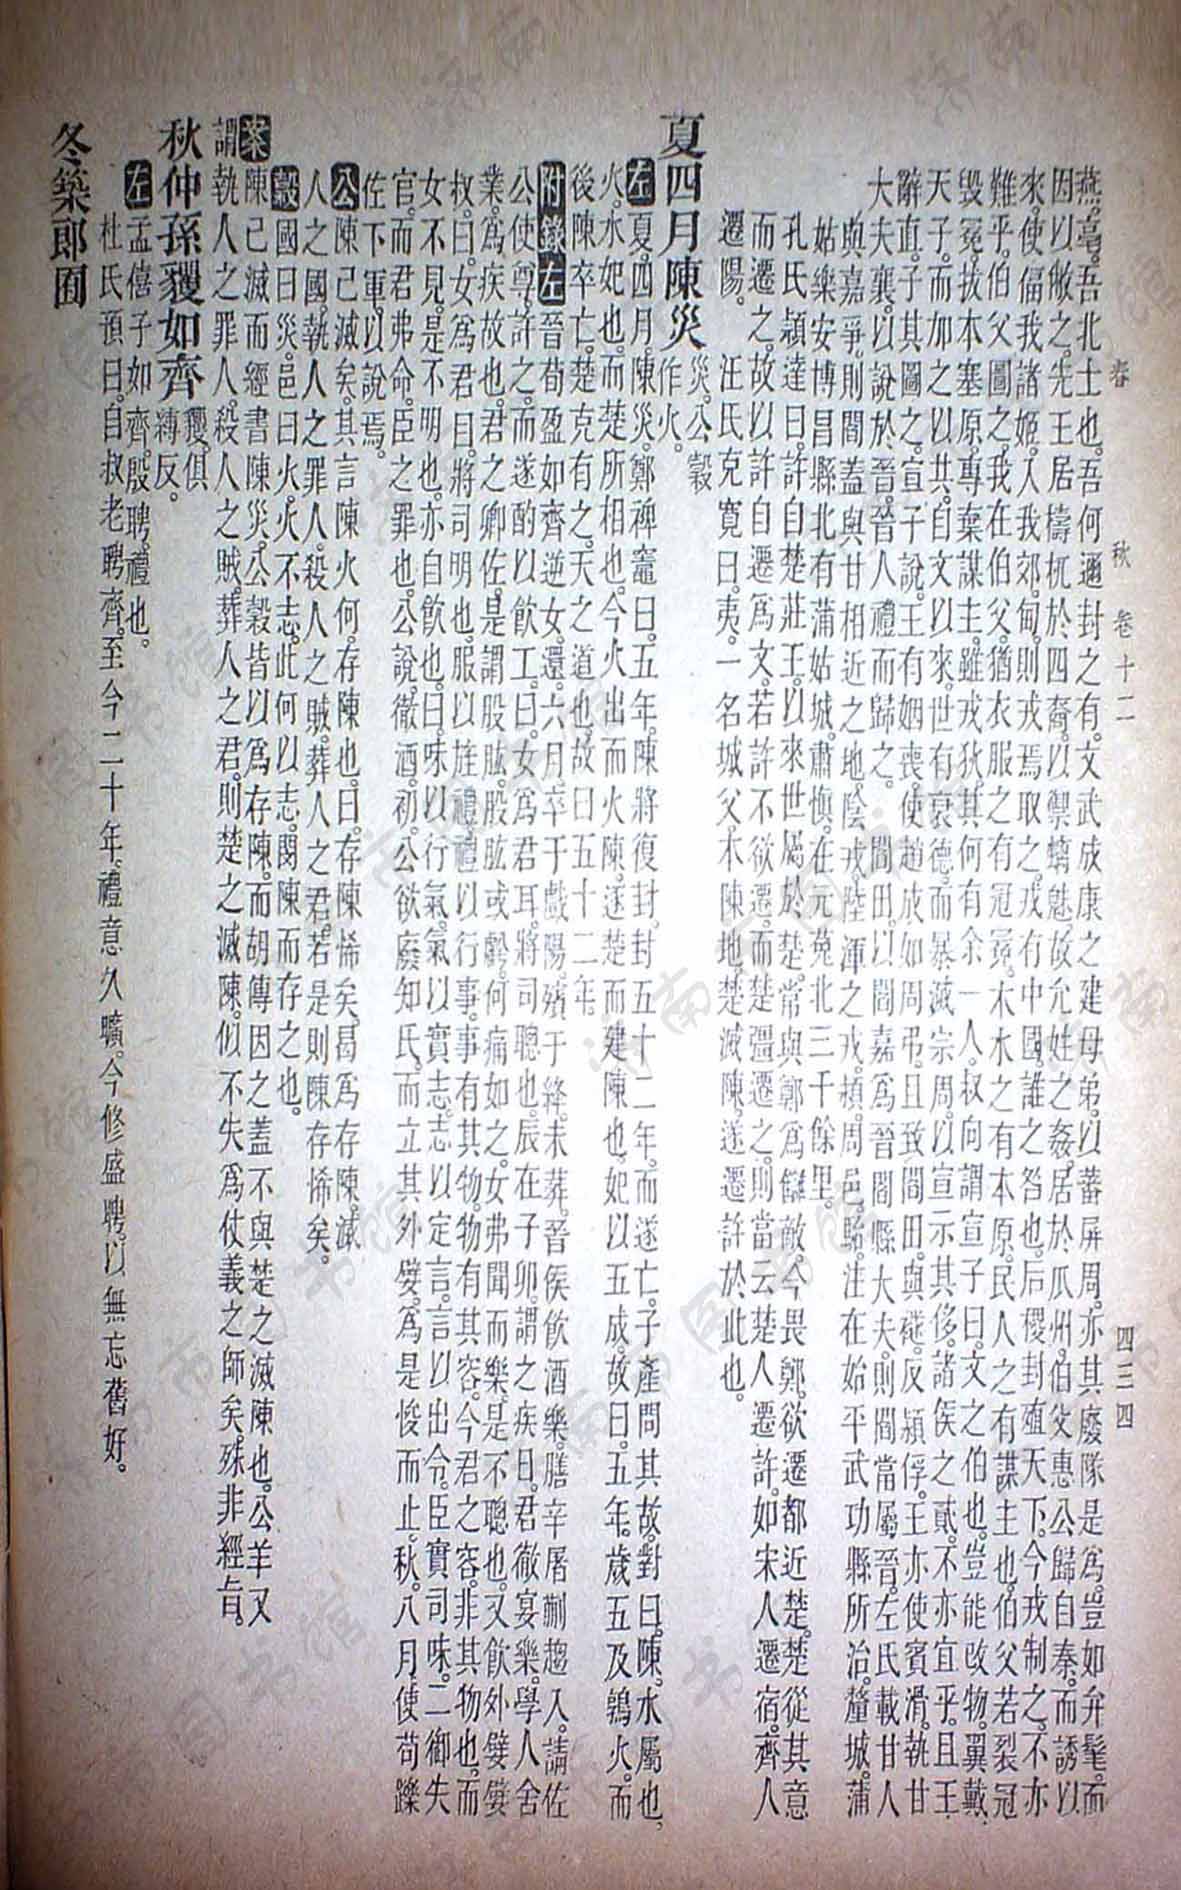 春　秋　卷十二　四三四
燕亳。吾北土也。吾何邇封之有。文武成康之建母弟。以蕃屏周。亦其廢隊是為。豈如弁髦。而
因以敝之。先王居檮杌於四裔。以禦螭魅。故允姓之姦。居於瓜州。伯父惠公歸自秦。而誘以
來。使偪我諸姬。入我郊甸。則戎焉取之。戎有中國。誰之咎也。后稷封殖天下。今戎制之。不亦
難乎。伯父圖之。我在伯父。猶衣服之有冠冕。木水之有本原。民人之有謀主也。伯父若裂冠
毀冕。拔本塞原。專棄謀主。雖戎狄。其何有余一人。叔向謂宣子曰。文之伯也。豈能改物。翼戴
天子。而加之以共。自文以來。世有衰德。而暴滅宗周。以宣示其侈。諸侯之貳。不亦宜乎。且王
辭直。子其圖之。宣子說。王有姻喪。使趙成如周弔。且致閻田。與襚。反潁俘。王亦使賓滑。執甘
大夫襄。以說於晉。晉人禮而歸之。閻田。以閻嘉為晉閻縣大夫。則閻當屬晉。左氏載甘人
與嘉爭。則閻蓋與甘相近之地。陰戎。陸渾之戎。潁。周邑。駘。注在始平武功縣所治。釐城。蒲
姑。樂安博昌縣北有蒲姑城。肅慎。在元菟北三千餘里。
孔氏穎達曰。許自楚莊王。以來世屬於楚。常與鄭為讎敵。今畏鄭。欲遷都近楚。楚從其意
而遷之。故以許自遷為文。若許不欲遷。而楚彊遷之。則當云楚人遷許。如宋人遷宿。齊人
遷陽。　汪氏克寬曰。夷。一名城父。本陳地。楚滅陳。遂遷許於此也。
夏四月陳災 災。公穀
作火。
左夏。四月。陳災。鄭裨竈曰。五年。陳將復封。封五十二年。而遂亡。子產問其故。對曰。陳。水屬也。
火。水妃也。而楚所相也。今火出而火陳。逐楚而建陳也。妃以五成。故曰。五年。歲五及鶉火。而
後陳卒亡。楚克有之。天之道也。故曰五十二年。
附錄左晉荀盈如齊逆女。還。六月。卒于戲陽。殯于絳。未葬。晉侯飲酒樂。膳宰屠蒯趨入。請佐
公使尊。許之。而遂酌以飲工。曰。女為君耳。將司聰也。辰在子卯。謂之疾日。君徹宴樂。學人舍
業。為疾故也。君之卿佐。是謂股肱。股肱或虧。何痛如之。女弗聞而樂。是不聰也。又飲外嬖嬖
叔。曰。女為君目。將司明也。服以旌禮。禮以行事。事有其物。物有其容。今君之容。非其物也。而
女不見。是不明也。亦自飲也。曰。味以行氣。氣以實志。志以定言。言以出令。臣實司味。二御失
官。而君弗命。臣之罪也。公說。徹酒。初。公欲廢知氏。而立其外嬖。為是悛而止。秋。八月。使荀躒
佐下軍。以說焉。
公陳已滅矣。其言陳火何。存陳也。曰。存陳悕矣。曷為存陳。滅
人之國。執人之罪人。殺人之賊。葬人之君。若是則陳存悕矣。
穀國曰災。邑曰火。火不志。此何以志。閔陳而存之也。
案陳已滅而經書陳災。公穀皆以為存陳。而胡傳因之。蓋不與楚之滅陳也。公羊又
謂執人之罪人。殺人之賊。葬人之君。則楚之滅陳。似不失為仗義之師矣。殊非經旨。
秋仲孫貜如齊 貜。俱
縛反。
左孟僖子如齊。殷聘。禮也。
杜氏預曰。自叔老聘齊。至今二十年。禮意久曠。今修盛聘。以無忘舊好。
冬築郎囿